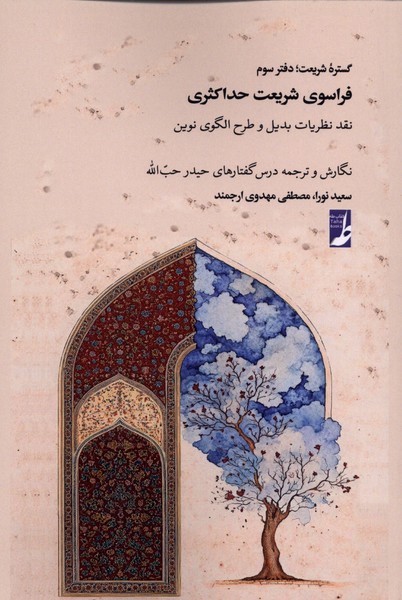 گسترهٔ شریعت؛ دفتر سوم
فراسوی شریعت حداکثری
نقد نظریات بدیل و طرح الگوی نوین
نگارش و ترجمه درس‌گفتارهای حیدر حبّ‌الله
سعید نورا، مصطفی مهدوی ارجمند
کتاب طه
Taha
Book
طه